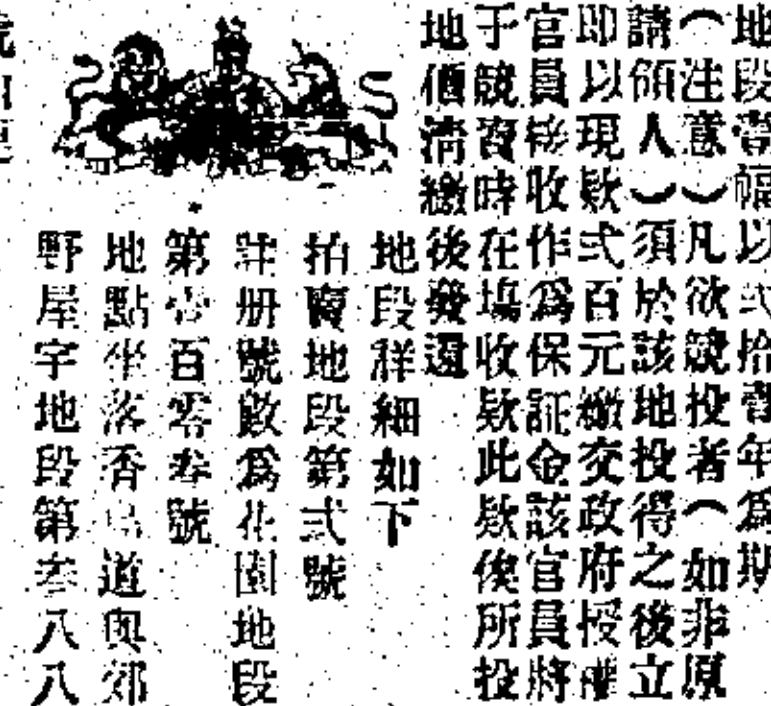 地段壹幅以弍拾壹年為期
(注意)凡欲競投者(如非原
請領人)須於該地投得之後立
即以現欵弍百元繳交政府授權
官員後收作為保証金該官員將
于競賣時在塲收欵此欵俟所投
地價清繳後發還
地段詳細如下
拍賣地段第弍號
註册號數為花園地段
第壹百零叁號
地點坐落香島道與郊
野屋宇地段第叁八八